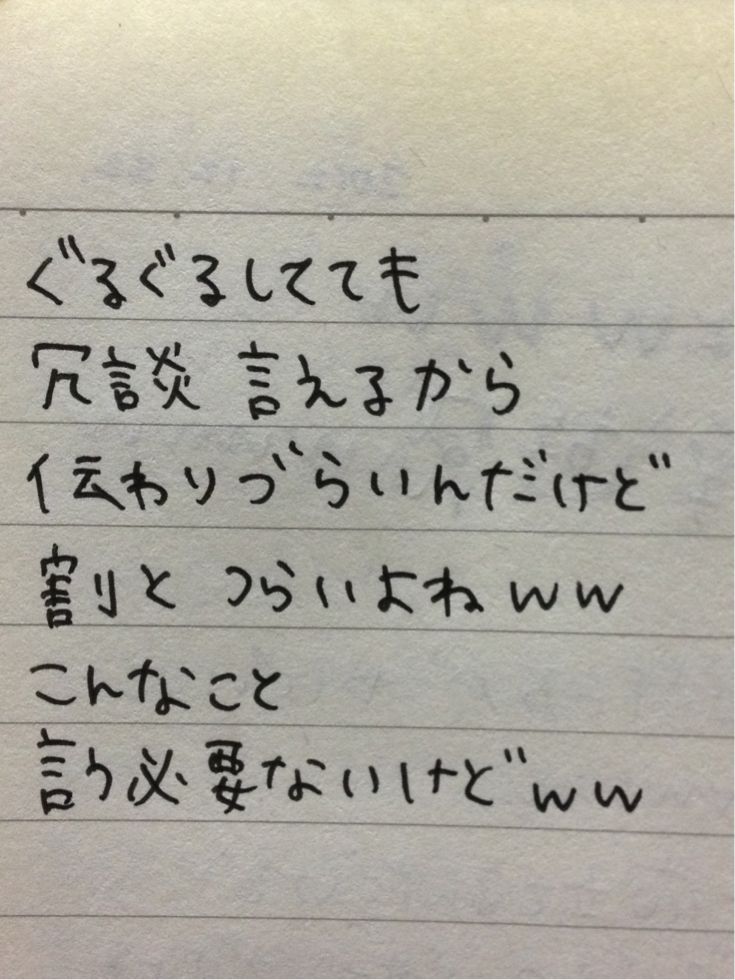 ぐるぐるしてても
冗談 言えるから
伝わりづらいんだけど
割と つらいよねww
こんなこと
言う必要ないけどww